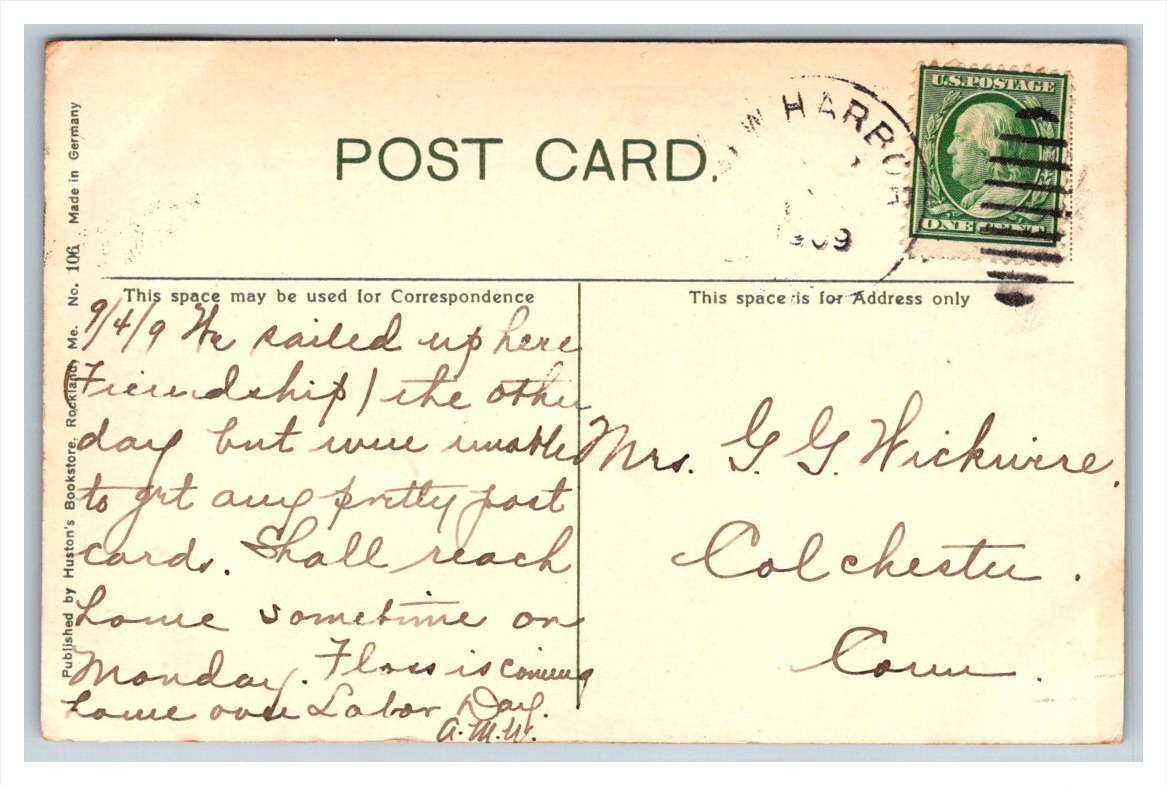 POST CARD.
W HARBOR
1909
U.S. POSTAGE
ONE CENT
Published by Huston's Bookstore, Rockland, Me. No. 106. Made in Germany
This space may be used for Correspondence
9/4/9 We sailed up here
(Friendship) the other
day but were unable
to get any pretty post
cards. Shall reach
home sometime on
Monday. Floss is coming
home over Labor Day.
A.M.W.
This space is for Address only
Mrs. G. G. Wickwire.
Colchester.
Conn.